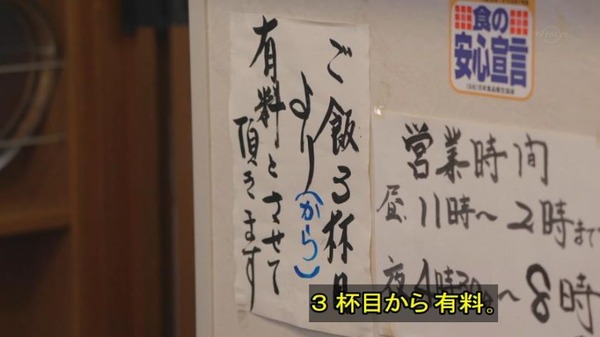 ご飯3杯目
より(から)
有料とさせて
頂きます
食の
安心宣言
営業時間
昼 11時〜2時まで
夜 4時30〜8時
3杯目から有料。